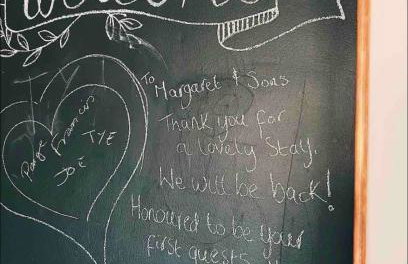 Welcome
To Margaret & Sons
Thank you for
a lovely Stay.
We will be back!
Honoured to be your
first guests
Paige Francis
TYE
JOE